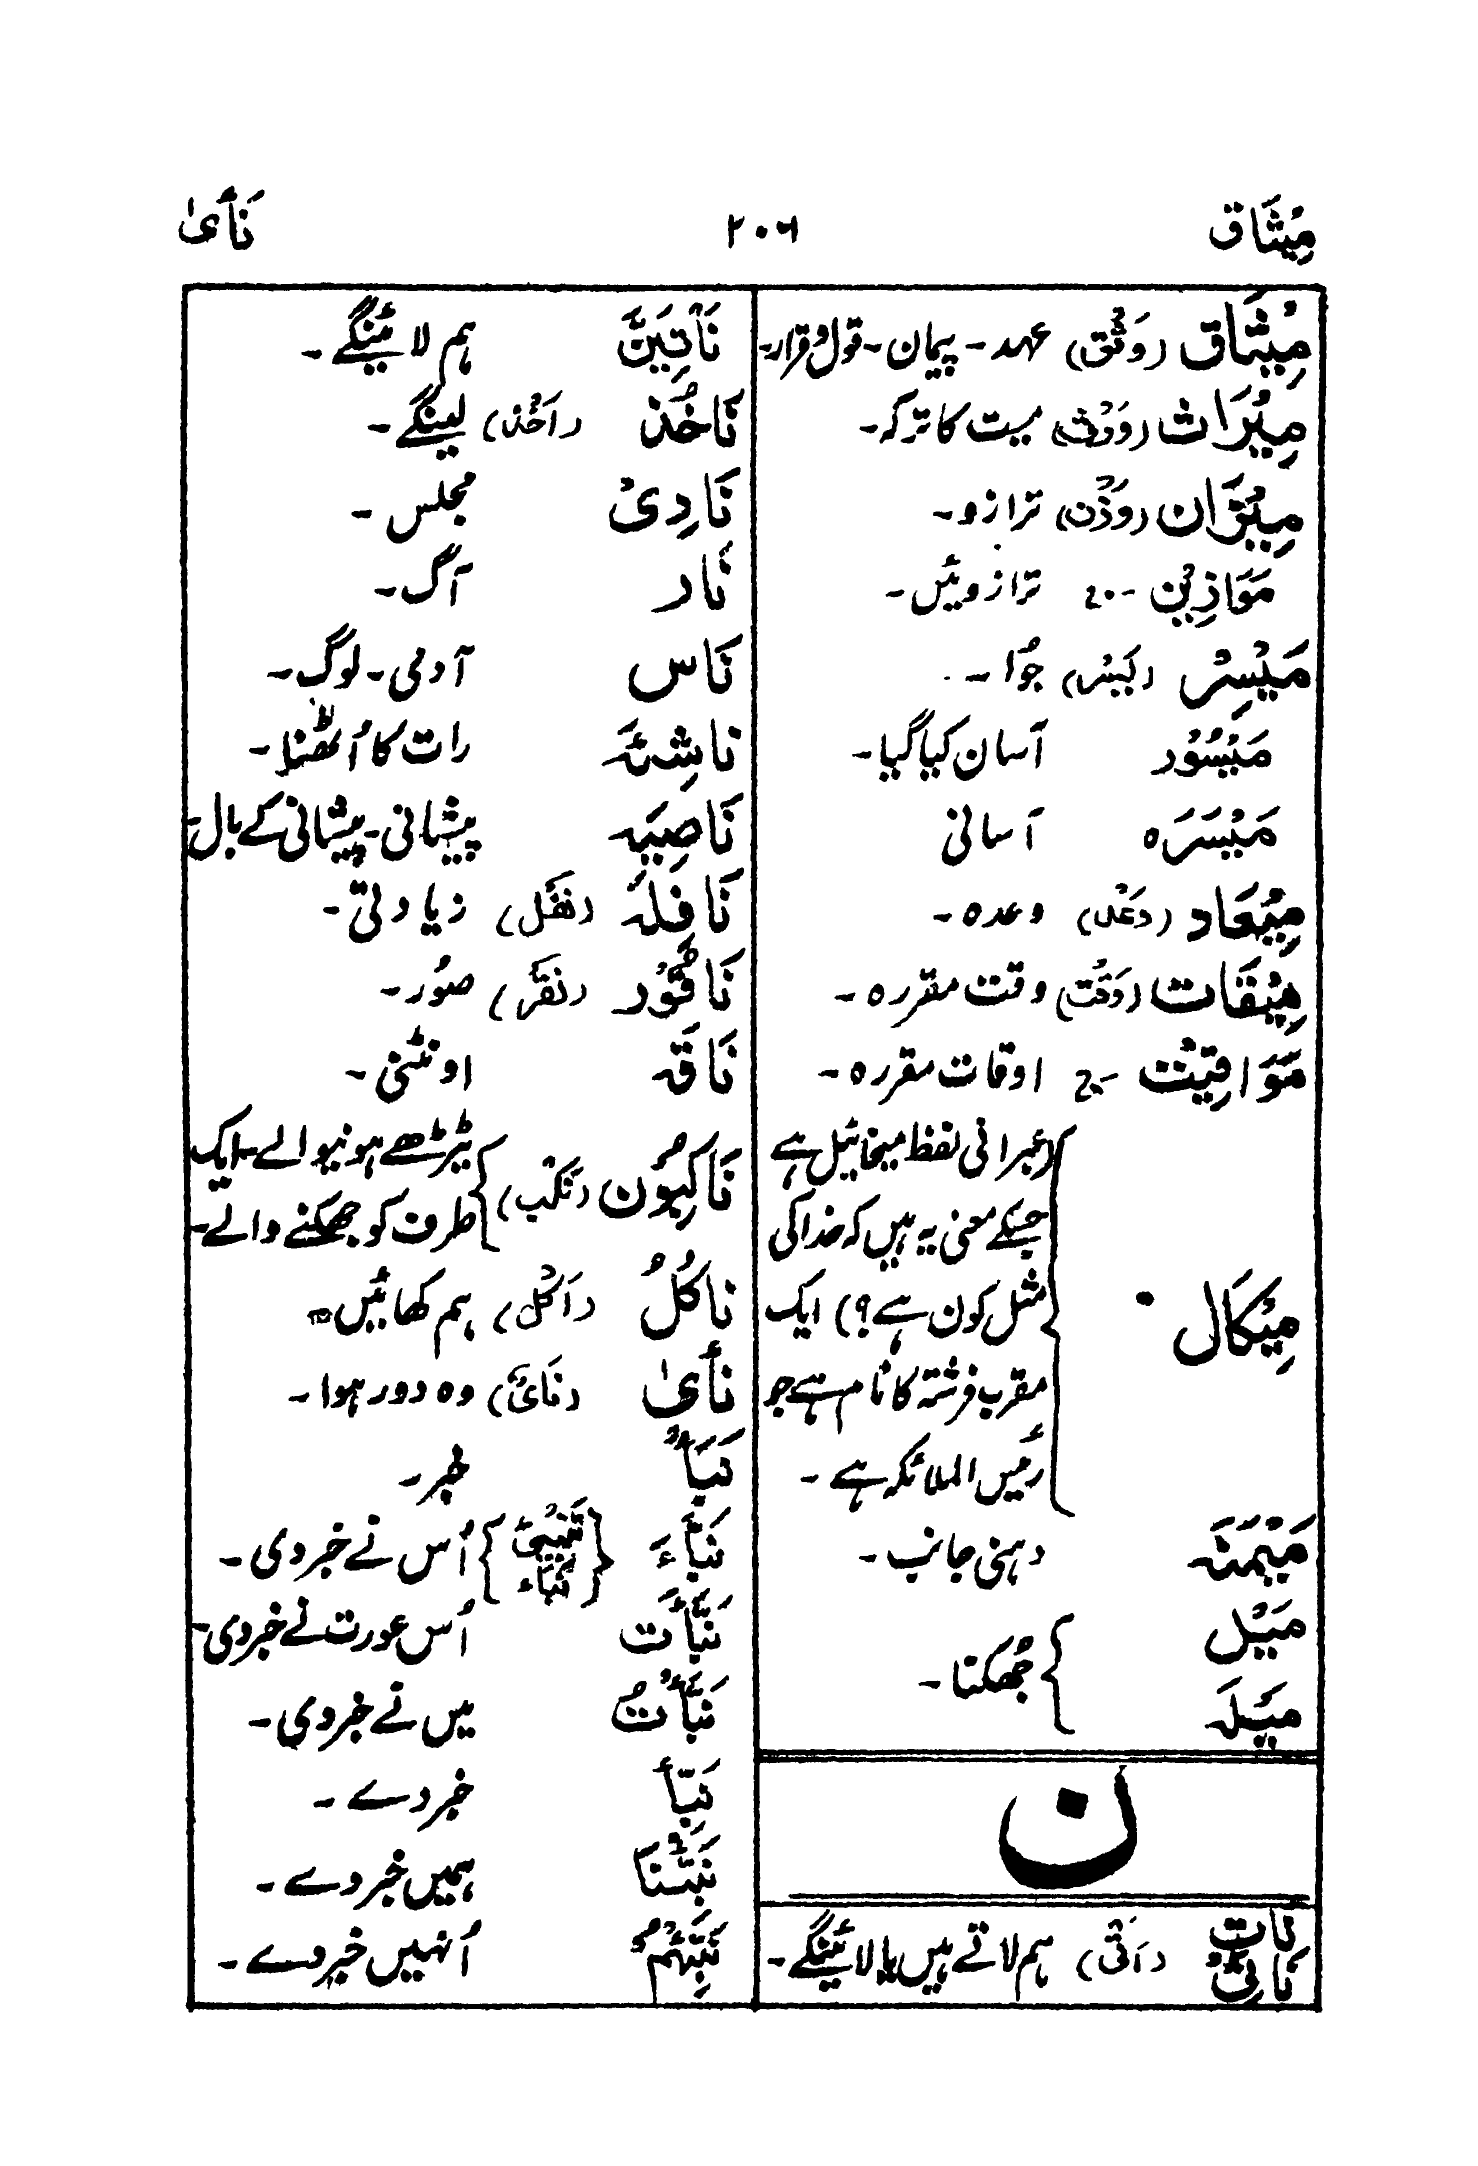 مِیْثَاق ۲۰۶ نَأیٰ
مِیْثَاق (وَثْق) عہد۔ پیمان۔ قول و قرار۔
مِیْرَاث (وَرْث) میت کا ترکہ۔
مِیْزَان (وَزْن) ترازو۔
مَوَازِیْن ۔ج ترازوئیں۔
مَیْسِر (یَسْر) جُوا۔
مَیْسُوْر آسان کیا گیا۔
مَیْسَرَہ آسانی
مِیْعَاد (وَعْد) وعدہ۔
مِیْقَات (وَقْت) وقت مقررہ۔
مَوَاقِیْت ۔ج اوقات مقررہ۔
(عبرانی لفظ میخائیل ہے
جسکے معنی یہ ہیں کہ خدا کی
مِیْکَال مثل کون ہے؟) ایک
مقرب فرشتہ کا نام ہے جو
رئیس الملائکہ ہے۔
مَیْمَنَہ دہنی جانب۔
مَیْل
جُھکنا۔
مَیْلَہ
ن
نَاتِ
نَاْتِیْ (اَتْی) ہم لاتے ہیں یا لائینگے۔
نَاْتِیَنَّ ہم لائینگے۔
نَاخُذ (اَخْذ) لینگے۔
نَادِیْ مجلس۔
نَار آگ۔
نَاس آدمی۔ لوگ۔
ناشِئَہ رات کا اُٹھنا۔
نَاصِیَہ پیشانی۔ پیشانی کے بال۔
نَافِلَہ (نَفْل) زیادتی۔
نَاقُوْر (نَقْر) صُور۔
نَاقَہ اونٹنی۔
نَاکِبُوْن (نَکْب) ٹیڑھے ہونیوالے۔ ایک
طرف کو جھکنے والے۔
ناکُلُ (اَکْل) ہم کھائیں۔
نأیٰ (نَایْ) وہ دور ہوا۔
نَبَأ خبر۔
نَبَّأءَ {تَنْبِیْ نَبَّاء} اُس نے خبر دی۔
نَبَّأَت اُس عورت نے خبر دی۔
نَبَّأْتُ میں نے خبر دی۔
نَبِّأ خبر دے۔
نَبِّئْنَا ہمیں خبر دے۔
نَبِّئْہُمْ اُنہیں خبر دے۔